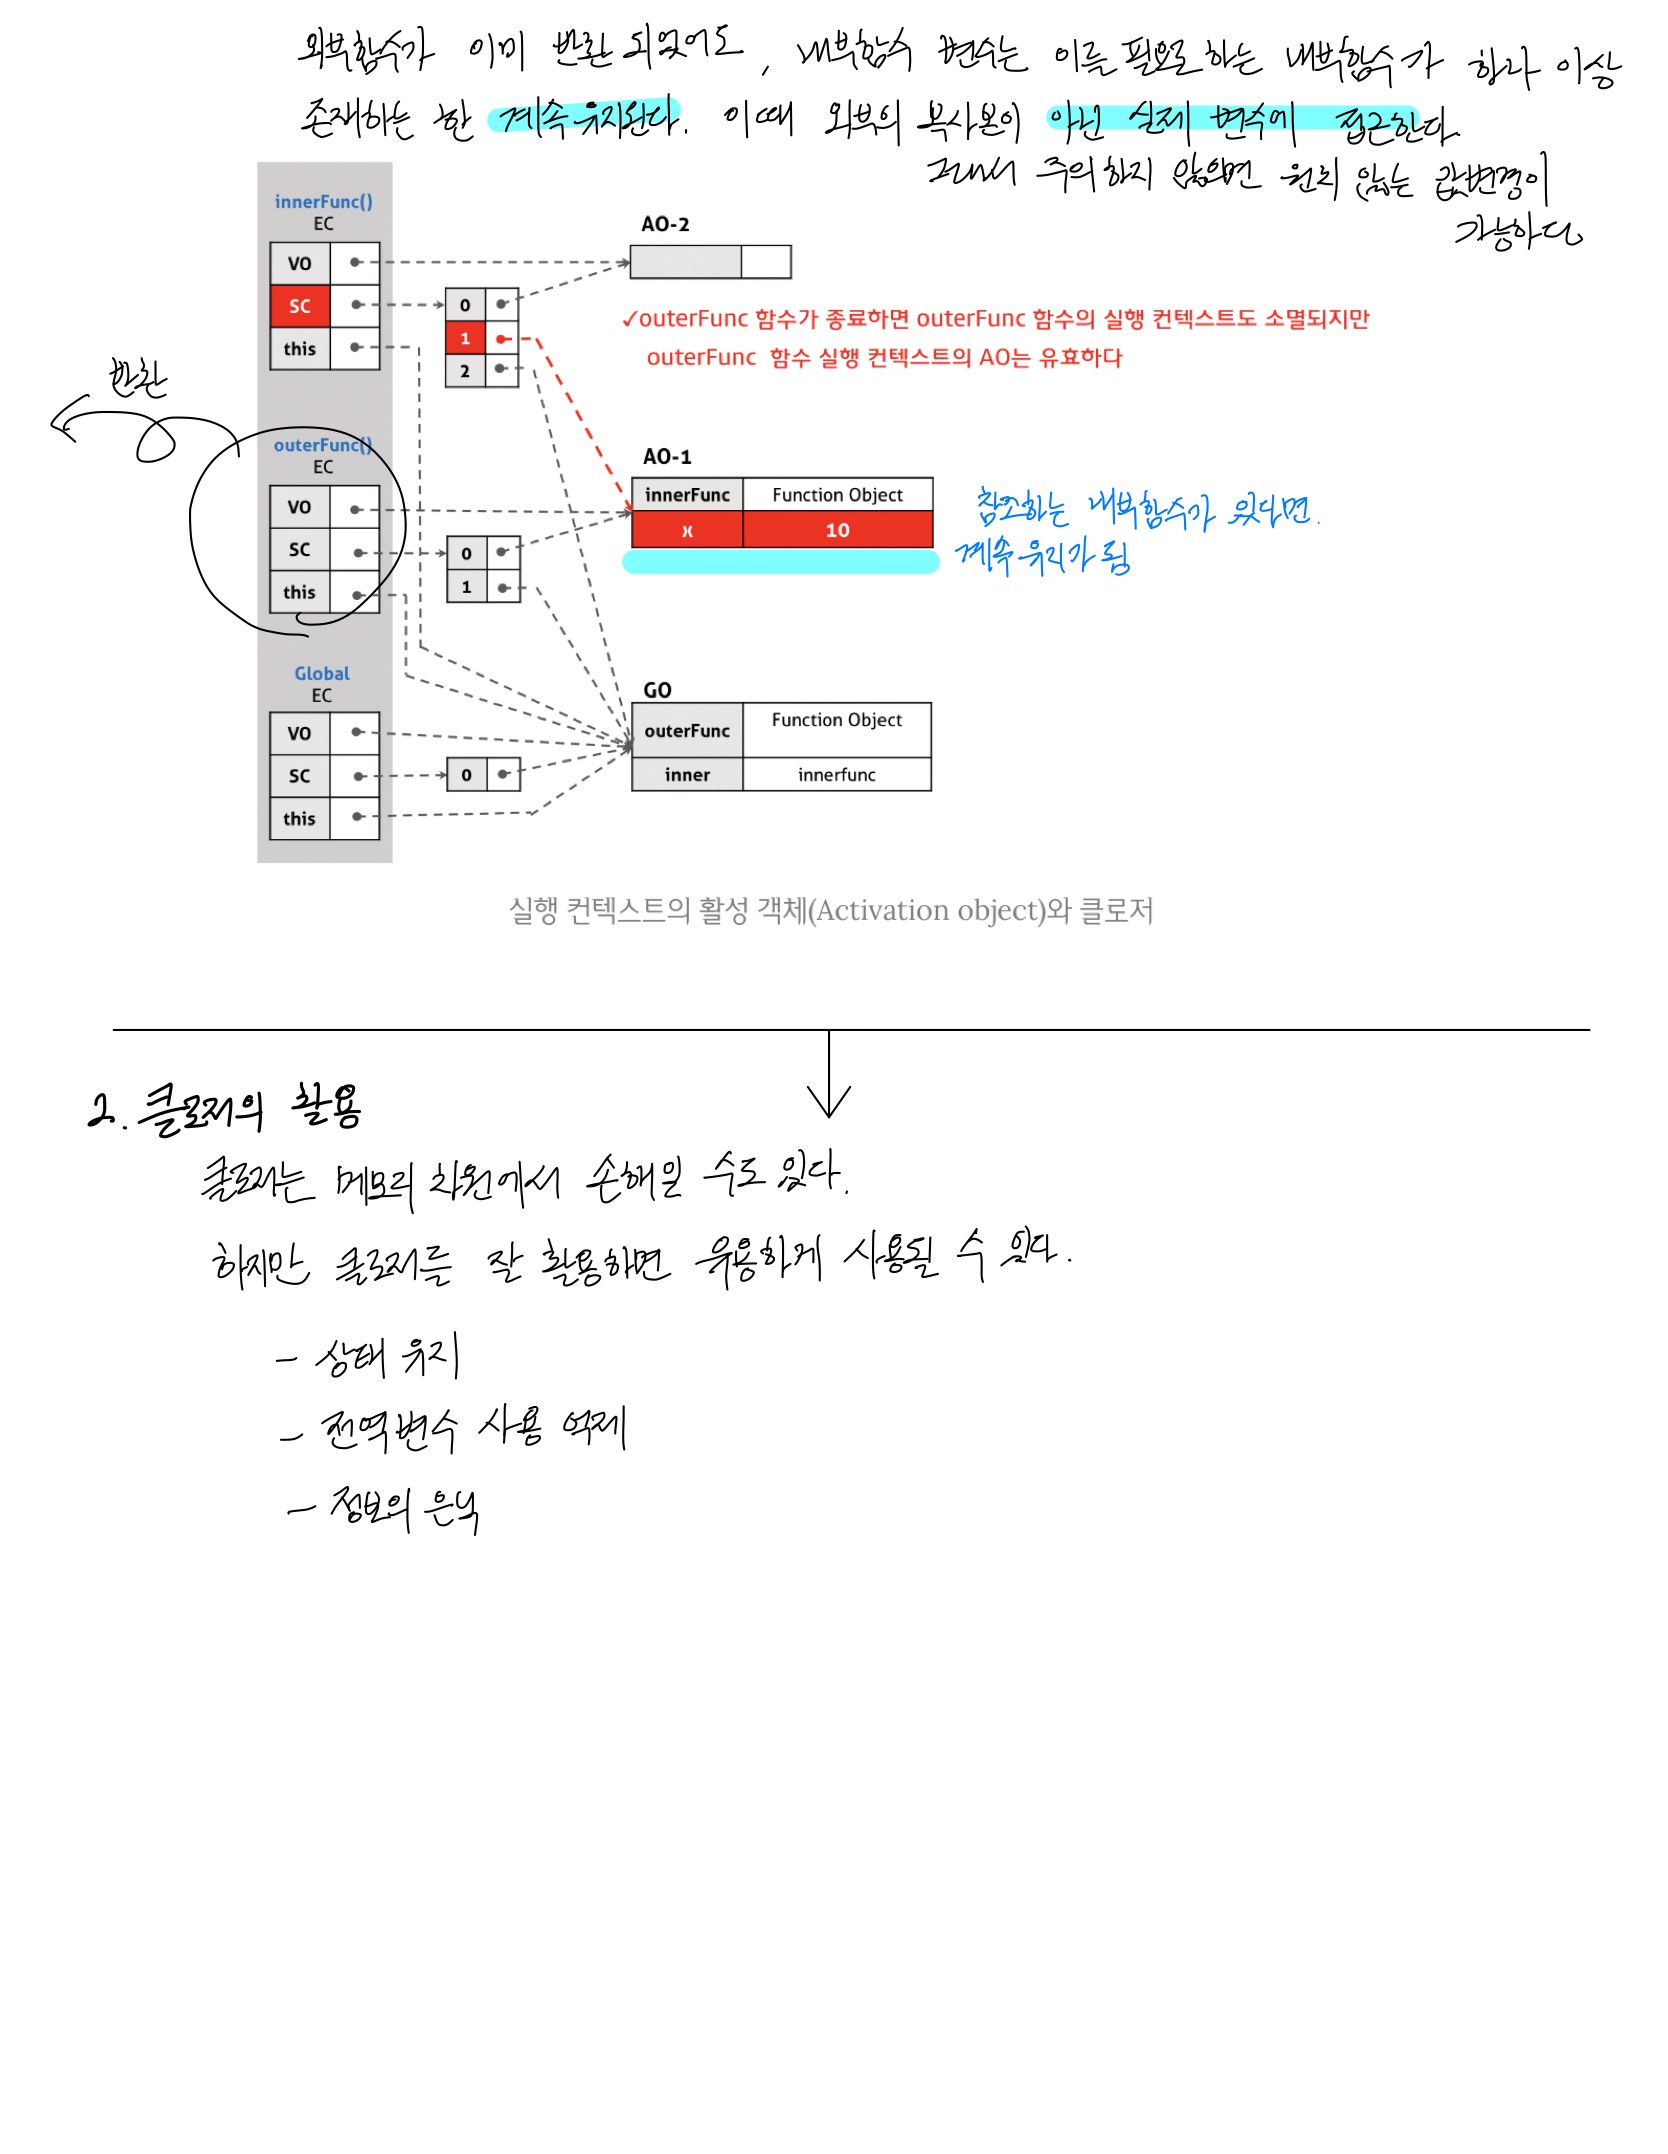 외부함수가 이미 반환 되었어도, 내부함수 변수는 이를 필요로 하는 내부함수가 하나 이상
존재하는 한 계속 유지된다. 이때 외부의 복사본이 아닌 실제 변수에 접근한다.
그래서 주의하지 않으면 원치 않는 값변경이
가능하다
innerFunc()
EC
VO
SC
this
0
1
2
AO-2
✓outerFunc 함수가 종료하면 outerFunc 함수의 실행 컨텍스트도 소멸되지만
outerFunc 함수 실행 컨텍스트의 AO는 유효하다
반환
outerFunc()
EC
VO
SC
this
0
1
AO-1
innerFunc Function Object
x 10
참조하는 내부함수가 있다면.
계속 유지가 됨
Global
EC
VO
SC
this
0
GO
outerFunc Function Object
inner innerfunc
실행 컨텍스트의 활성 객체(Activation object)와 클로저
2. 클로저의 활용
클로저는 메모리 차원에서 손해일 수도 있다.
하지만 클로저를 잘 활용하면 유용하게 사용될 수 있다.
- 상태 유지
- 전역변수 사용 억제
- 정보의 은닉